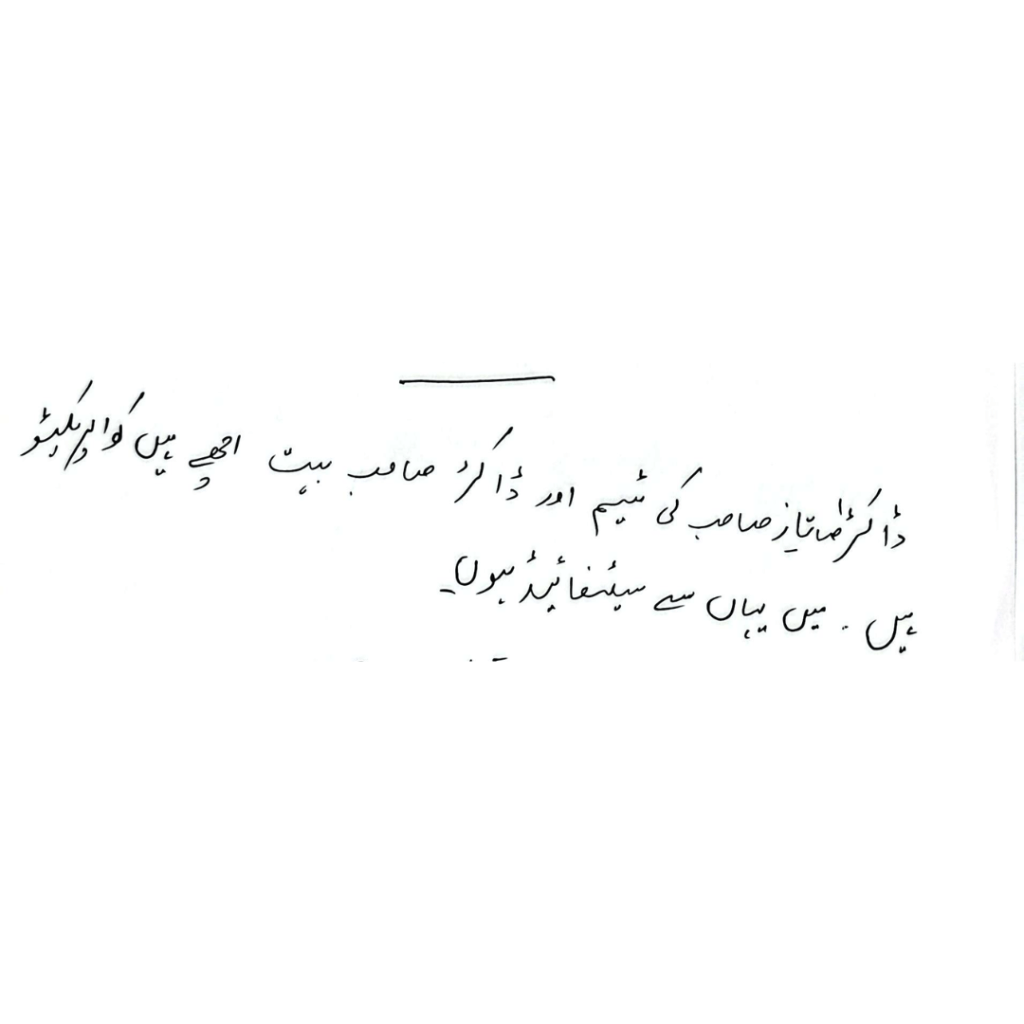 ڈاکٹر امتیاز صاحب کی ٹیم اور ڈاکٹر صاحب بہت اچھے ہیں کواپریکیٹو
ہیں۔ میں یہاں سے سیٹسفائیڈ ہوں۔